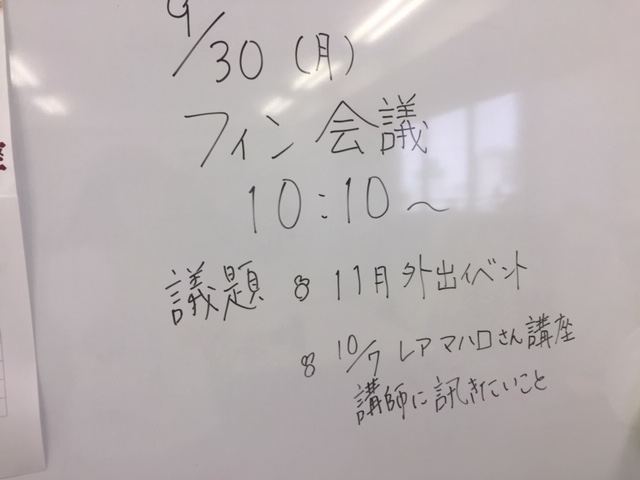 9/30 (月)
フィン 会議
10:10〜
議題 8 11月 外出イベント
8 10/7 レア マハロさん講座
講師に訊きたいこと